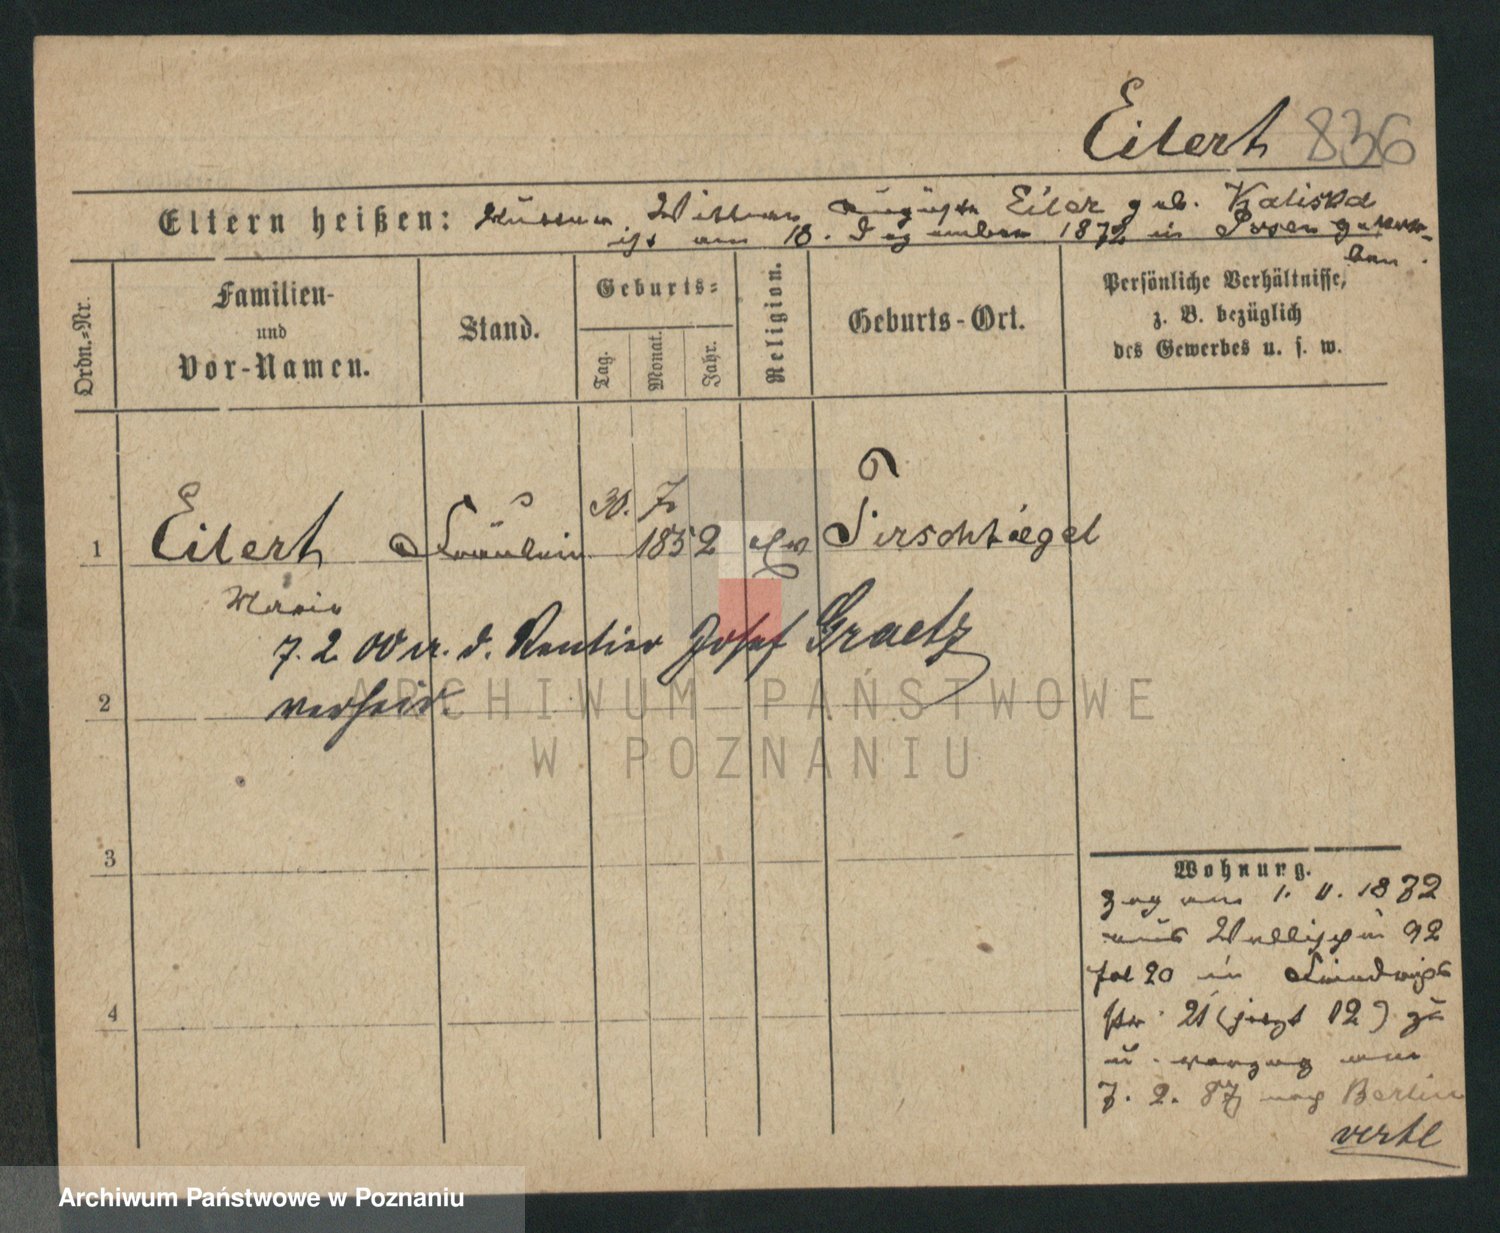 Eilert 836
Eltern heißen: Mutter, Wittwe Auguste Eiler geb. Kaliska
ist am 18. Dezember 1872 in Posen gestor-
ben.
Ordn.-Nr.
Familien-
und
Vor-Namen.
Stand.
Geburts-
Tag.
Monat.
Jahr.
Religion.
Geburts-Ort.
Persönliche Verhältnisse,
z. B. bezüglich
des Gewerbes u. s. w.
1 Eilert Fräulein 30. 7. 1852 ev Tirschtiegel
Marie
7. 2. 00 m. d. Rentier Josef Graetz
verheir.
2
3
4
Wohnung.
zog am 1. 11. 1872
aus Wallischei 92
fol 20 in
str. 21 (jezt 12) zu
u. verzog am
7. 2. 87 nach Berlin
verte
ARCHIWUM PAŃSTWOWE
W POZNANIU
Archiwum Państwowe w Poznaniu